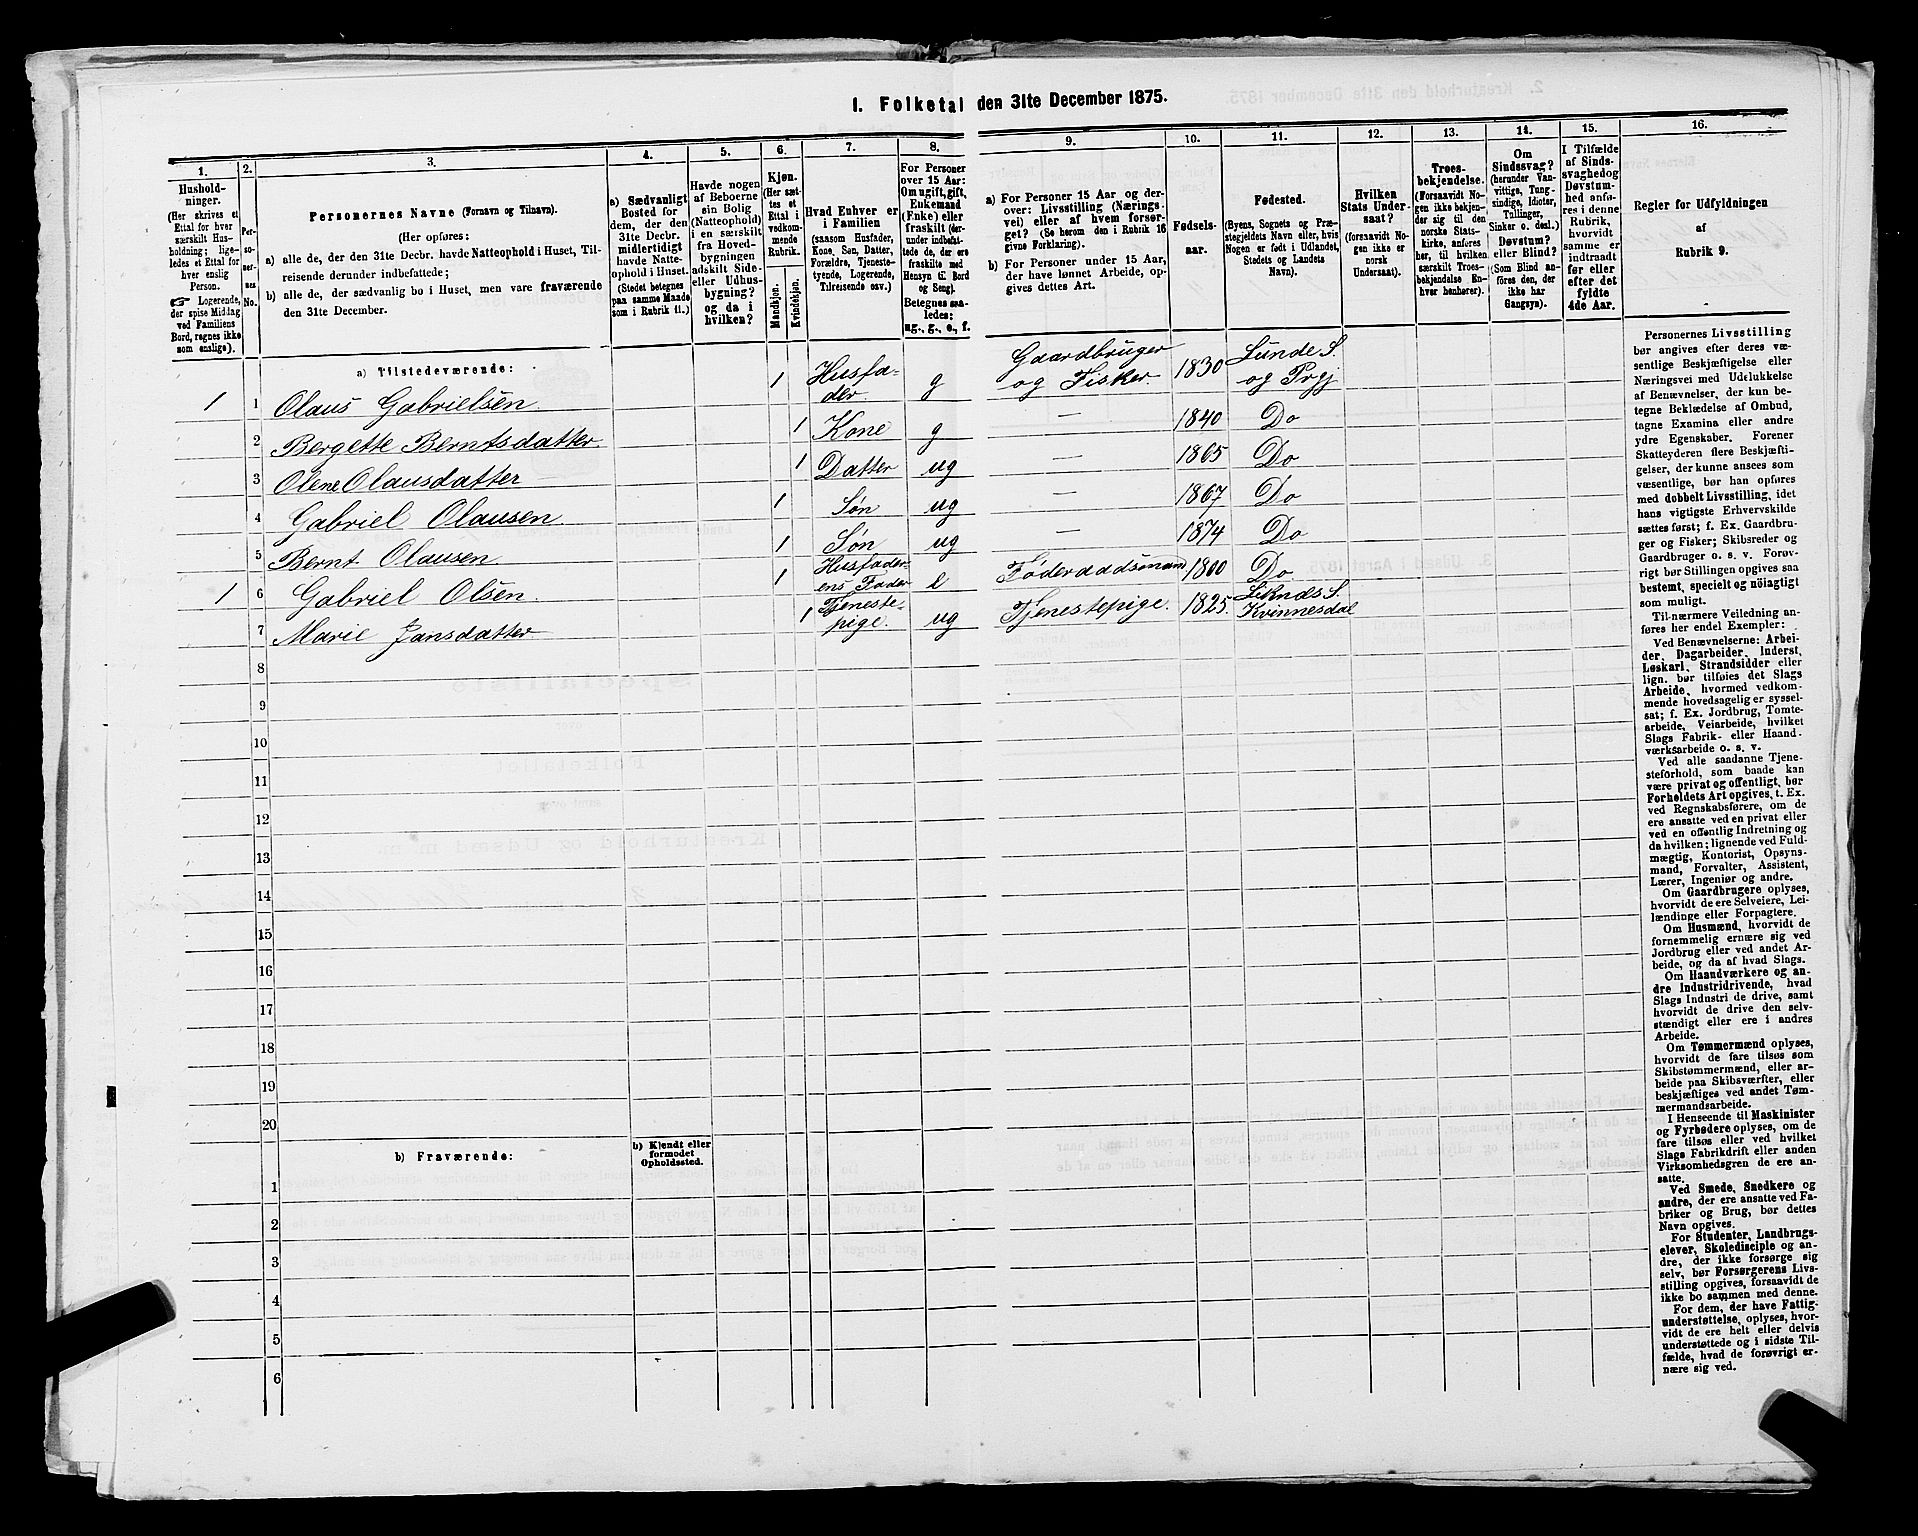 I. Folketal den 31te December 1875.
1.
2.
3.
4.
5.
6.
7.
8.
9.
10.
11.
12.
13.
14.
15.
16.
Husholdninger.
(Her skrives et Ettal for hver særskilt Husholdning; ligeledes et Ettal for hver enslig Person.
☞ Logerende, der spise Middag ved Familiens Bord, regnes ikke som enslige).
Personernes No.
Personernes Navne (Fornavn og Tilnavn).
(Her opføres:
a) alle de, der den 31te Decbr. havde Natteophold i Huset, Tilreisende derunder indbefattede;
b) alle de, der sædvanlig bo i Huset, men vare fraværende den 31te December.
a) Sædvanligt Bosted for dem, der den 31te Decbr. midlertidigt havde Natteophold i Huset. (Stedet betegnes paa samme Maade som i Rubrik 11.)
Havde nogen af Beboerne sin Bolig (Natteophold) i en særskilt fra Hovedbygningen adskilt Side- eller Udhusbygning? og da i hvilken?
Kjøn. (Her sættes et Ettal i vedkommende Rubrik.
Mandkjøn.
Kvindekjøn.
Hvad Enhver er i Familien
(saasom Husfader, Kone, Søn, Datter, Forældre, Tjenestetyende, Logerende, Tilreisende osv.)
For Personer over 15 Aar: Om ugift, gift, Enkemand (Enke) eller fraskilt (derunder indbefattede de, der ere fraskilte med Hensyn til Bord og Seng).
Betegnes saaledes: ug., g., e., f.
a) For Personer 15 Aar og derover: Livsstilling (Næringsvei) eller af hvem forsørget? (Se herom den i Rubrik 16 givne Forklaring).
b) For Personer under 15 Aar, der have lønnet Arbeide, opgives dettes Art.
Fødselsaar.
Fødested.
(Byens, Sognets og Præstegjeldets Navn eller, hvis Nogen er født i Udlandet, Stedets og Landets Navn).
Hvilken Stats Undersaat?
(forsaavidt Nogen ikke er norsk Undersaat).
Troesbekjendelse.
(Forsaavidt Nogen ikke bekjender sig til den norske Statskirke, anføres her, til hvilken særskilt Troesbekjendelse Enhver henhører).
Om Sindssvag? (herunder Vanvittige, Tungsindige, Idioter, Tullinger, Sinker o. desl.)
Døvstum? eller Blind? (Som Blind anføres den, der ikke har Gangsyn).
I Tilfælde af Sindssvaghed og Døvstumhed anføres i denne Rubrik, hvorvidt samme er indtraadt før eller efter det fyldte 4de Aar.
Regler for Udfyldningen
af
Rubrik 9.
a) Tilstedeværende:
1 1 Olaus Gabrielsen 1 Husfader g Gaardbruger og Fisker. 1830 Lunde S. og Prgj
2 Bergette Berntsdatter 1 Kone g — 1840 Do
3 Olene Olausdatter 1 Datter ug — 1865 Do
4 Gabriel Olausen 1 Søn ug — 1867 Do
5 Bernt Olausen 1 Søn ug — 1874 Do
1 6 Gabriel Olsen 1 Husfaderens Fader e Føderaadsmand 1800 Do
7 Marie Jansdatter 1 Tjenestepige. ug Tjenestepige. 1825 Kvinnesdal
8
9
10
11
12
13
14
15
16
17
18
19
20
b) Fraværende:
b) Kjendt eller formodet Opholdssted.
1
2
3
4
5
6
Personernes Livsstilling
bør angives efter deres væ-
sentlige Beskjæftigelse eller
Næringsvei med Udelukkelse
af Benævnelser, der kun be-
tegne Beklædelse af Ombud,
tagne Examina eller andre
ydre Egenskaber. Forener
Skatteyderen flere Beskjæfti-
gelser, der kunne ansees som
væsentlige, bør han opføres
med dobbelt Livsstilling, idet
hans vigtigste Erhvervskilde
sættes først; f. Ex. Gaardbru-
ger og Fisker; Skibsreder og
Gaardbruger o. s. v. Forøv-
rigt bør Stillingen opgives saa
bestemt, specielt og nöiagtigt
som muligt.
Til nærmere Veiledning an-
føres her endel Exempler:
Ved Benævnelserne: Arbei-
der, Dagarbeider, Inderst,
Løskarl, Strandsidder eller
lign. bør tilføies det Slags
Arbeide, hvormed vedkom-
mende hovedsagelig er syssel-
sat; f. Ex. Jordbrug, Tomte-
arbeide, Veiarbeide, hvilket
Slags Fabrik- eller Haand-
værksarbeide o. s. v.
Ved alle saadanne Tjene-
steforhold, som baade kan
være privat og offentligt, bør
Forholdets Art opgives, t. Ex.
ved Regnskabsførere, om de
ere ansatte ved en privat eller
ved en offentlig Indretning og
da hvilken; lignende ved Fuld-
mægtig, Kontorist, Opsyns-
mand, Forvalter, Assistent,
Lærer, Ingeniør og andre.
Om Gaardbrugere oplyses,
hvorvidt de ere Selveiere, Lei-
lændinge eller Forpagtere.
Om Husmænd, hvorvidt de
fornemmelig ernære sig ved
Jordbrug eller ved andet Ar-
beide, og da af hvad Slags.
Om Haandværkere og an-
dre Industridrivende, hvad
Slags Industri de drive, samt
hvorvidt de drive den selv-
stændigt eller ere i andres
Arbeide.
Om Tømmermænd oplyses,
hvorvidt de fare tilsøs som
Skibstømmermænd, eller ar-
beide paa Skibsværfter, eller
beskjæftiges ved andet Tøm-
mermandsarbeide.
I Henseende til Maskinister
og Fyrbødere oplyses, om de
fare tilsøs eller ved hvilket
Slags Fabrikdrift eller anden
Virksomhedsgren de ere an-
satte.
Ved Smede, Snedkere og
andre, der ere ansatte ved Fa-
briker og Brug, bør dettes
Navn opgives.
For Studenter, Landbrugs-
elever, Skoledisciple og an-
dre, der ikke forsørge sig
selv, bør Forsørgerens Livs-
stilling opgives, forsaavidt de
ikke bo sammen med denne.
For dem, der have Fattig-
understøttelse, oplyses, hvor-
vidt de ere helt eller delvis
understøttede og i sidste Til-
fælde, hvad de forøvrigt er-
nære sig ved.